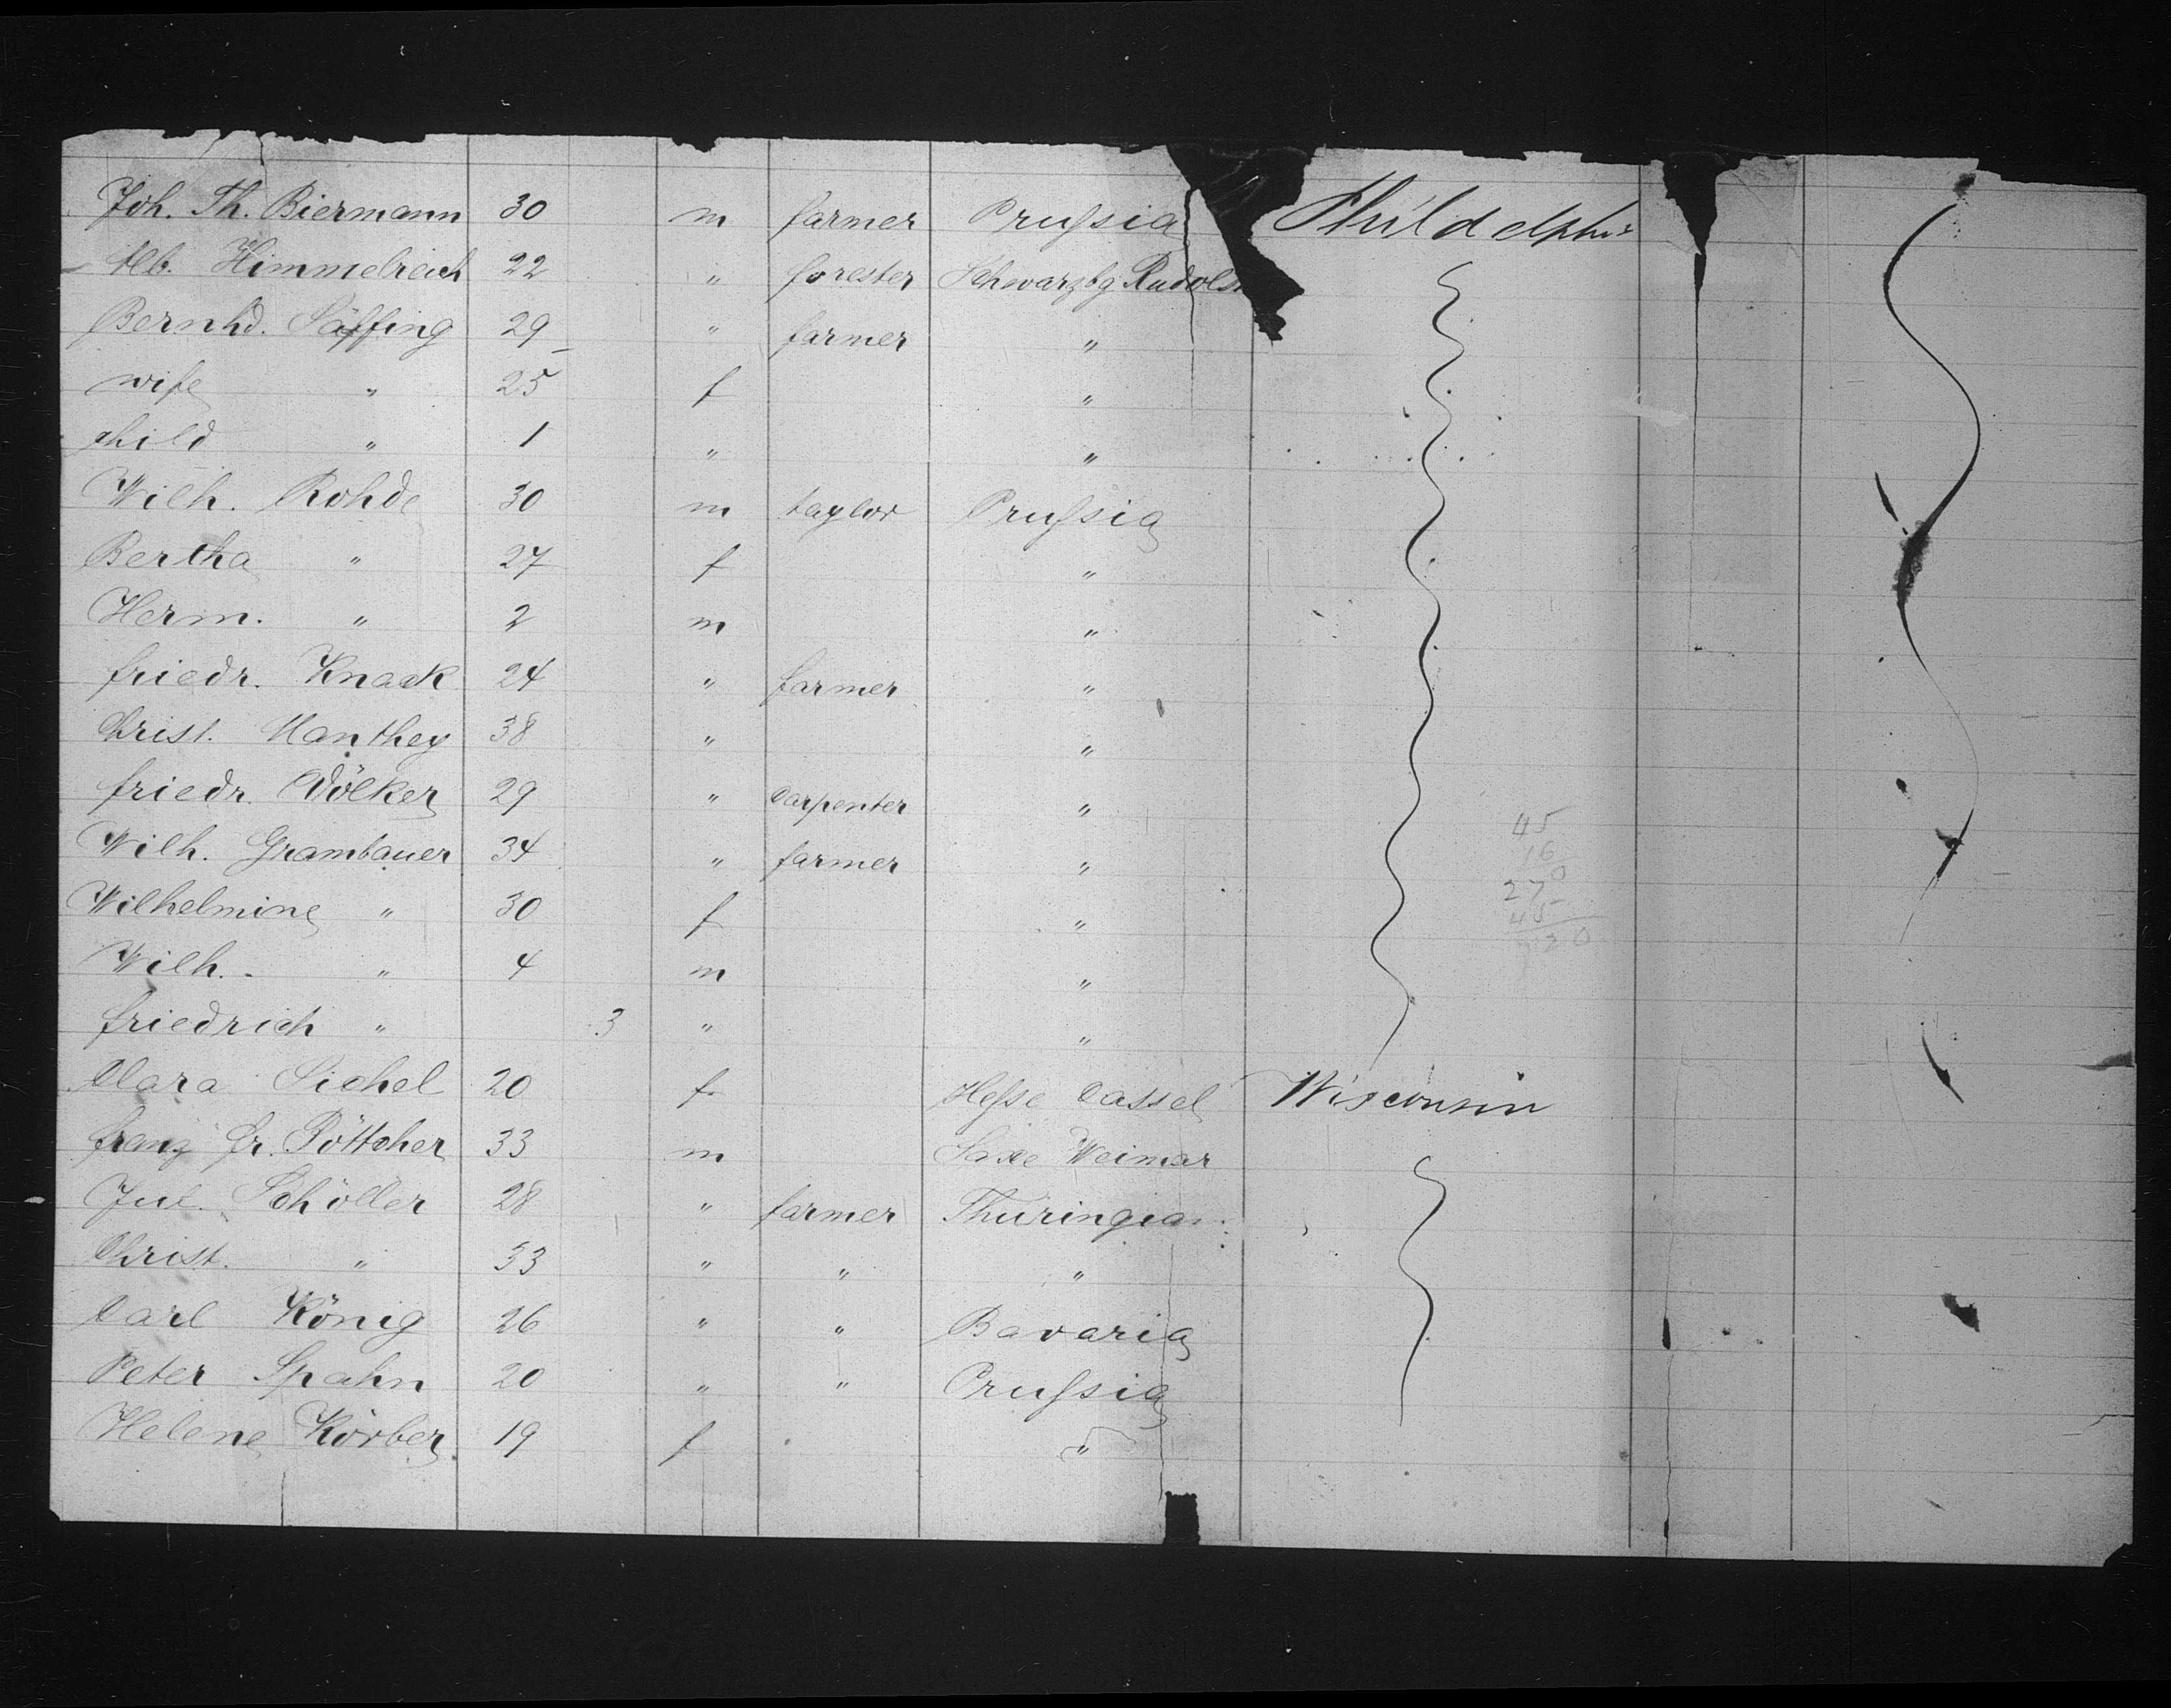 Joh. Th. Biermann 30 m farmer Prussia Phildelphi
Alb. Himmelreich 22 " forester Schwarzbg Rudols
Bernhd. Säffing 29 " farmer "
wife " 25 f "
child " 1 " "
Wilh. Rohde 30 m taylor Prussia
Bertha " 27 f "
Herm. " 2 m "
friedr. Knaak 24 " farmer "
Christ. Manthey 38 " "
friedr. Völker 29 " Carpenter "
Wilh. Grambauer 34 " farmer "
Wilhelmine " 30 f "
Wilh. " 4 m "
friedrich " 3 " "
Clara Sichel 20 f Hesse Cassel Wisconsin
franz fr. Pöttcher 33 m Saxe Weimar
Jul. Schöller 28 " farmer Thuringian
Christ. " 33 " " "
Carl König 26 " " Bavaria
Peter Spahn 20 " " Prussia
Helene Körber 19 f "
45
16
270
45
720